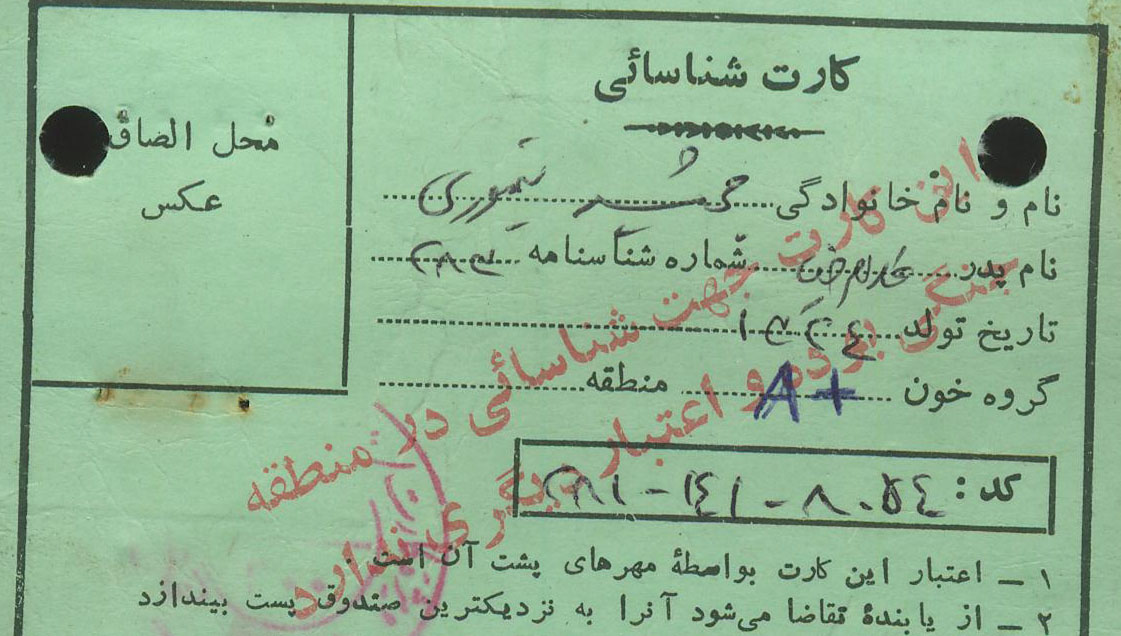 کارت شناسائی
محل الصاق
عکس
نام و نام خانوادگی جمشید تیموری
نام پدر شماره شناسنامه
تاریخ تولد
گروه خون A+ منطقه
کد :
۱ ــ اعتبار این کارت بواسطهٔ مهرهای پشت آن است .
۲ ــ از یابندهٔ تقاضا می‌شود آنرا به نزدیکترین صندوق پست بیندازد
این کارت جهت شناسائی در منطقه
جنگی بوده و اعتبار دیگری ندارد